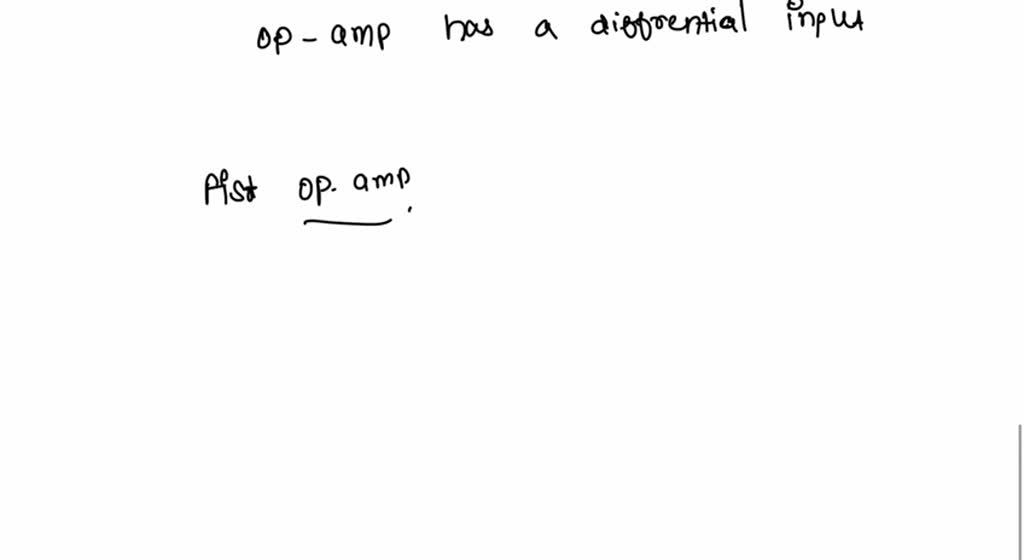 op-amp has a diffrential input
First op.amp.